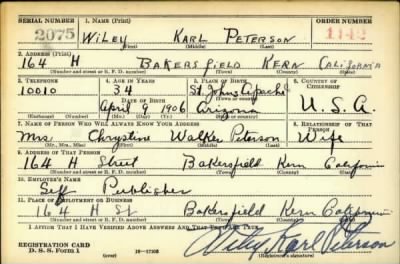 SERIAL NUMBER 1. NAME (Print) ORDER NUMBER
2075 WILEY KARL PETERSON 1142
(First) (Middle) (Last)
2. ADDRESS (Print)
164 H BAKERSFIELD KERN CALIFORNIA
(Number and street or R. F. D. number) (Town) (County) (State)
3. TELEPHONE 4. AGE IN YEARS 5. PLACE OF BIRTH 6. COUNTRY OF CITIZENSHIP
10010 34 St. Johns Apache
DATE OF BIRTH (Town or county)
April 9 1906 Arizona U.S.A.
(Exchange) (Number) (Mo.) (Day) (Yr.) (State or country)
7. NAME OF PERSON WHO WILL ALWAYS KNOW YOUR ADDRESS 8. RELATIONSHIP OF THAT PERSON
Mrs Chrystine Walker Peterson Wife
(Mr., Mrs., Miss) (First) (Middle) (Last)
9. ADDRESS OF THAT PERSON
164 H Street Bakersfield Kern California
(Number and street or R. F. D. number) (Town) (County) (State)
10. EMPLOYER'S NAME
Self Publisher
11. PLACE OF EMPLOYMENT OR BUSINESS
164 H St Bakersfield Kern California
(Number and street or R. F. D. number) (Town) (County) (State)
I AFFIRM THAT I HAVE VERIFIED ABOVE ANSWERS AND THAT THEY ARE TRUE.
REGISTRATION CARD
D. S. S. Form 1 (over) Wiley Karl Peterson
(Registrant's signature)